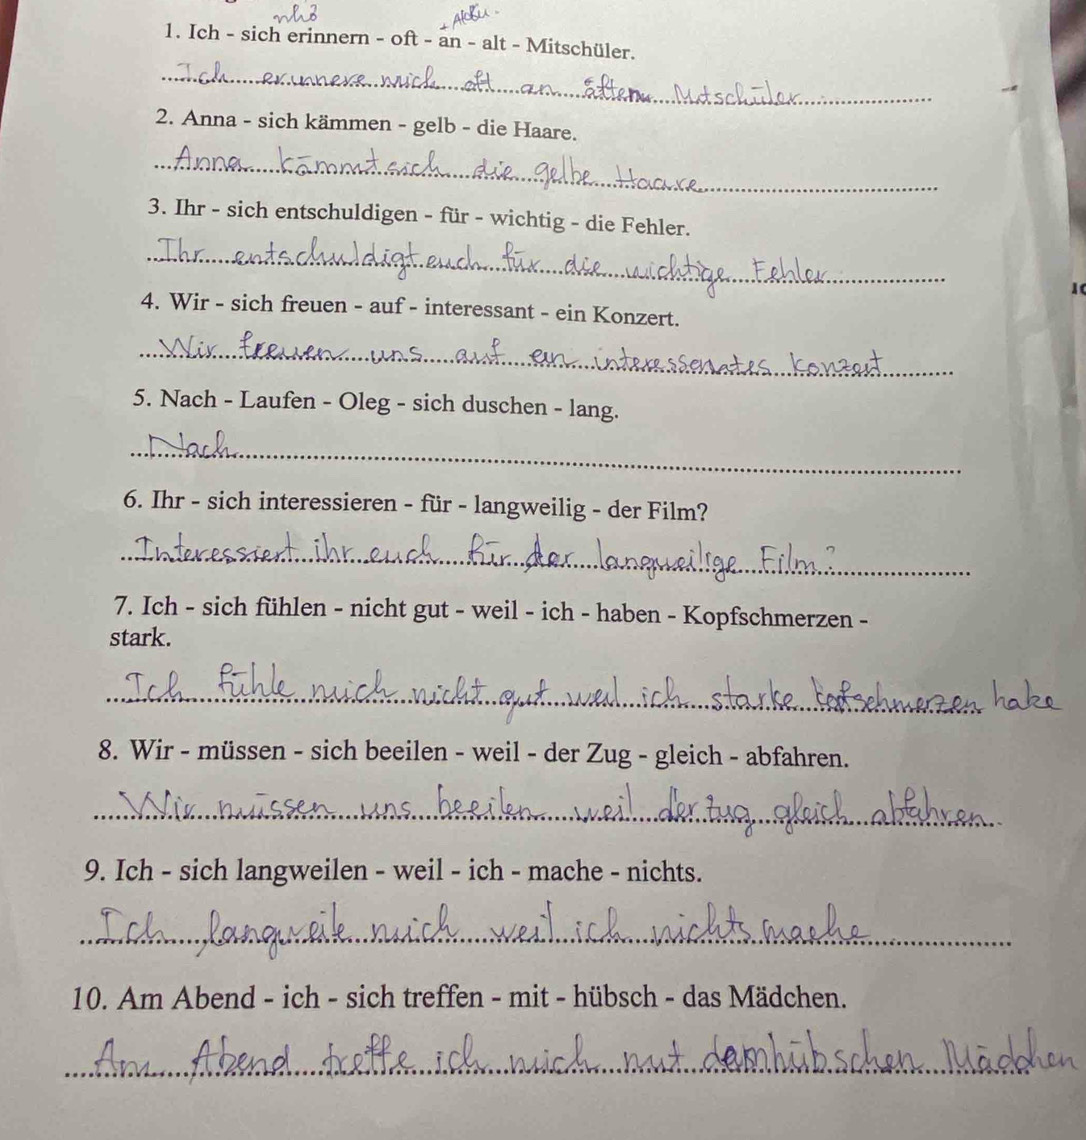 nhớ + Akku.
1. Ich - sich erinnern - oft - an - alt - Mitschüler.
Ich erinnere mich oft an ältern Mitschüler
2. Anna - sich kämmen - gelb - die Haare.
Anna kämmt sich die gelbe Haare
3. Ihr - sich entschuldigen - für - wichtig - die Fehler.
Ihr entschuldigt euch für die wichtige Fehler
4. Wir - sich freuen - auf - interessant - ein Konzert.
Wir freuen uns auf ein interessenates Konzert
5. Nach - Laufen - Oleg - sich duschen - lang.
Nach
6. Ihr - sich interessieren - für - langweilig - der Film?
Interessiert ihr euch für der langweilige Film?
7. Ich - sich fühlen - nicht gut - weil - ich - haben - Kopfschmerzen -
stark.
Ich fühle mich nicht gut weil ich starke kofschmerzen habe
8. Wir - müssen - sich beeilen - weil - der Zug - gleich - abfahren.
Wir müssen uns beeilen weil der zug gleich abfahren.
9. Ich - sich langweilen - weil - ich - mache - nichts.
Ich langweile mich weil ich nichts mache
10. Am Abend - ich - sich treffen - mit - hübsch - das Mädchen.
Am Abend treffe ich mich mit dem hübschen Mädchen